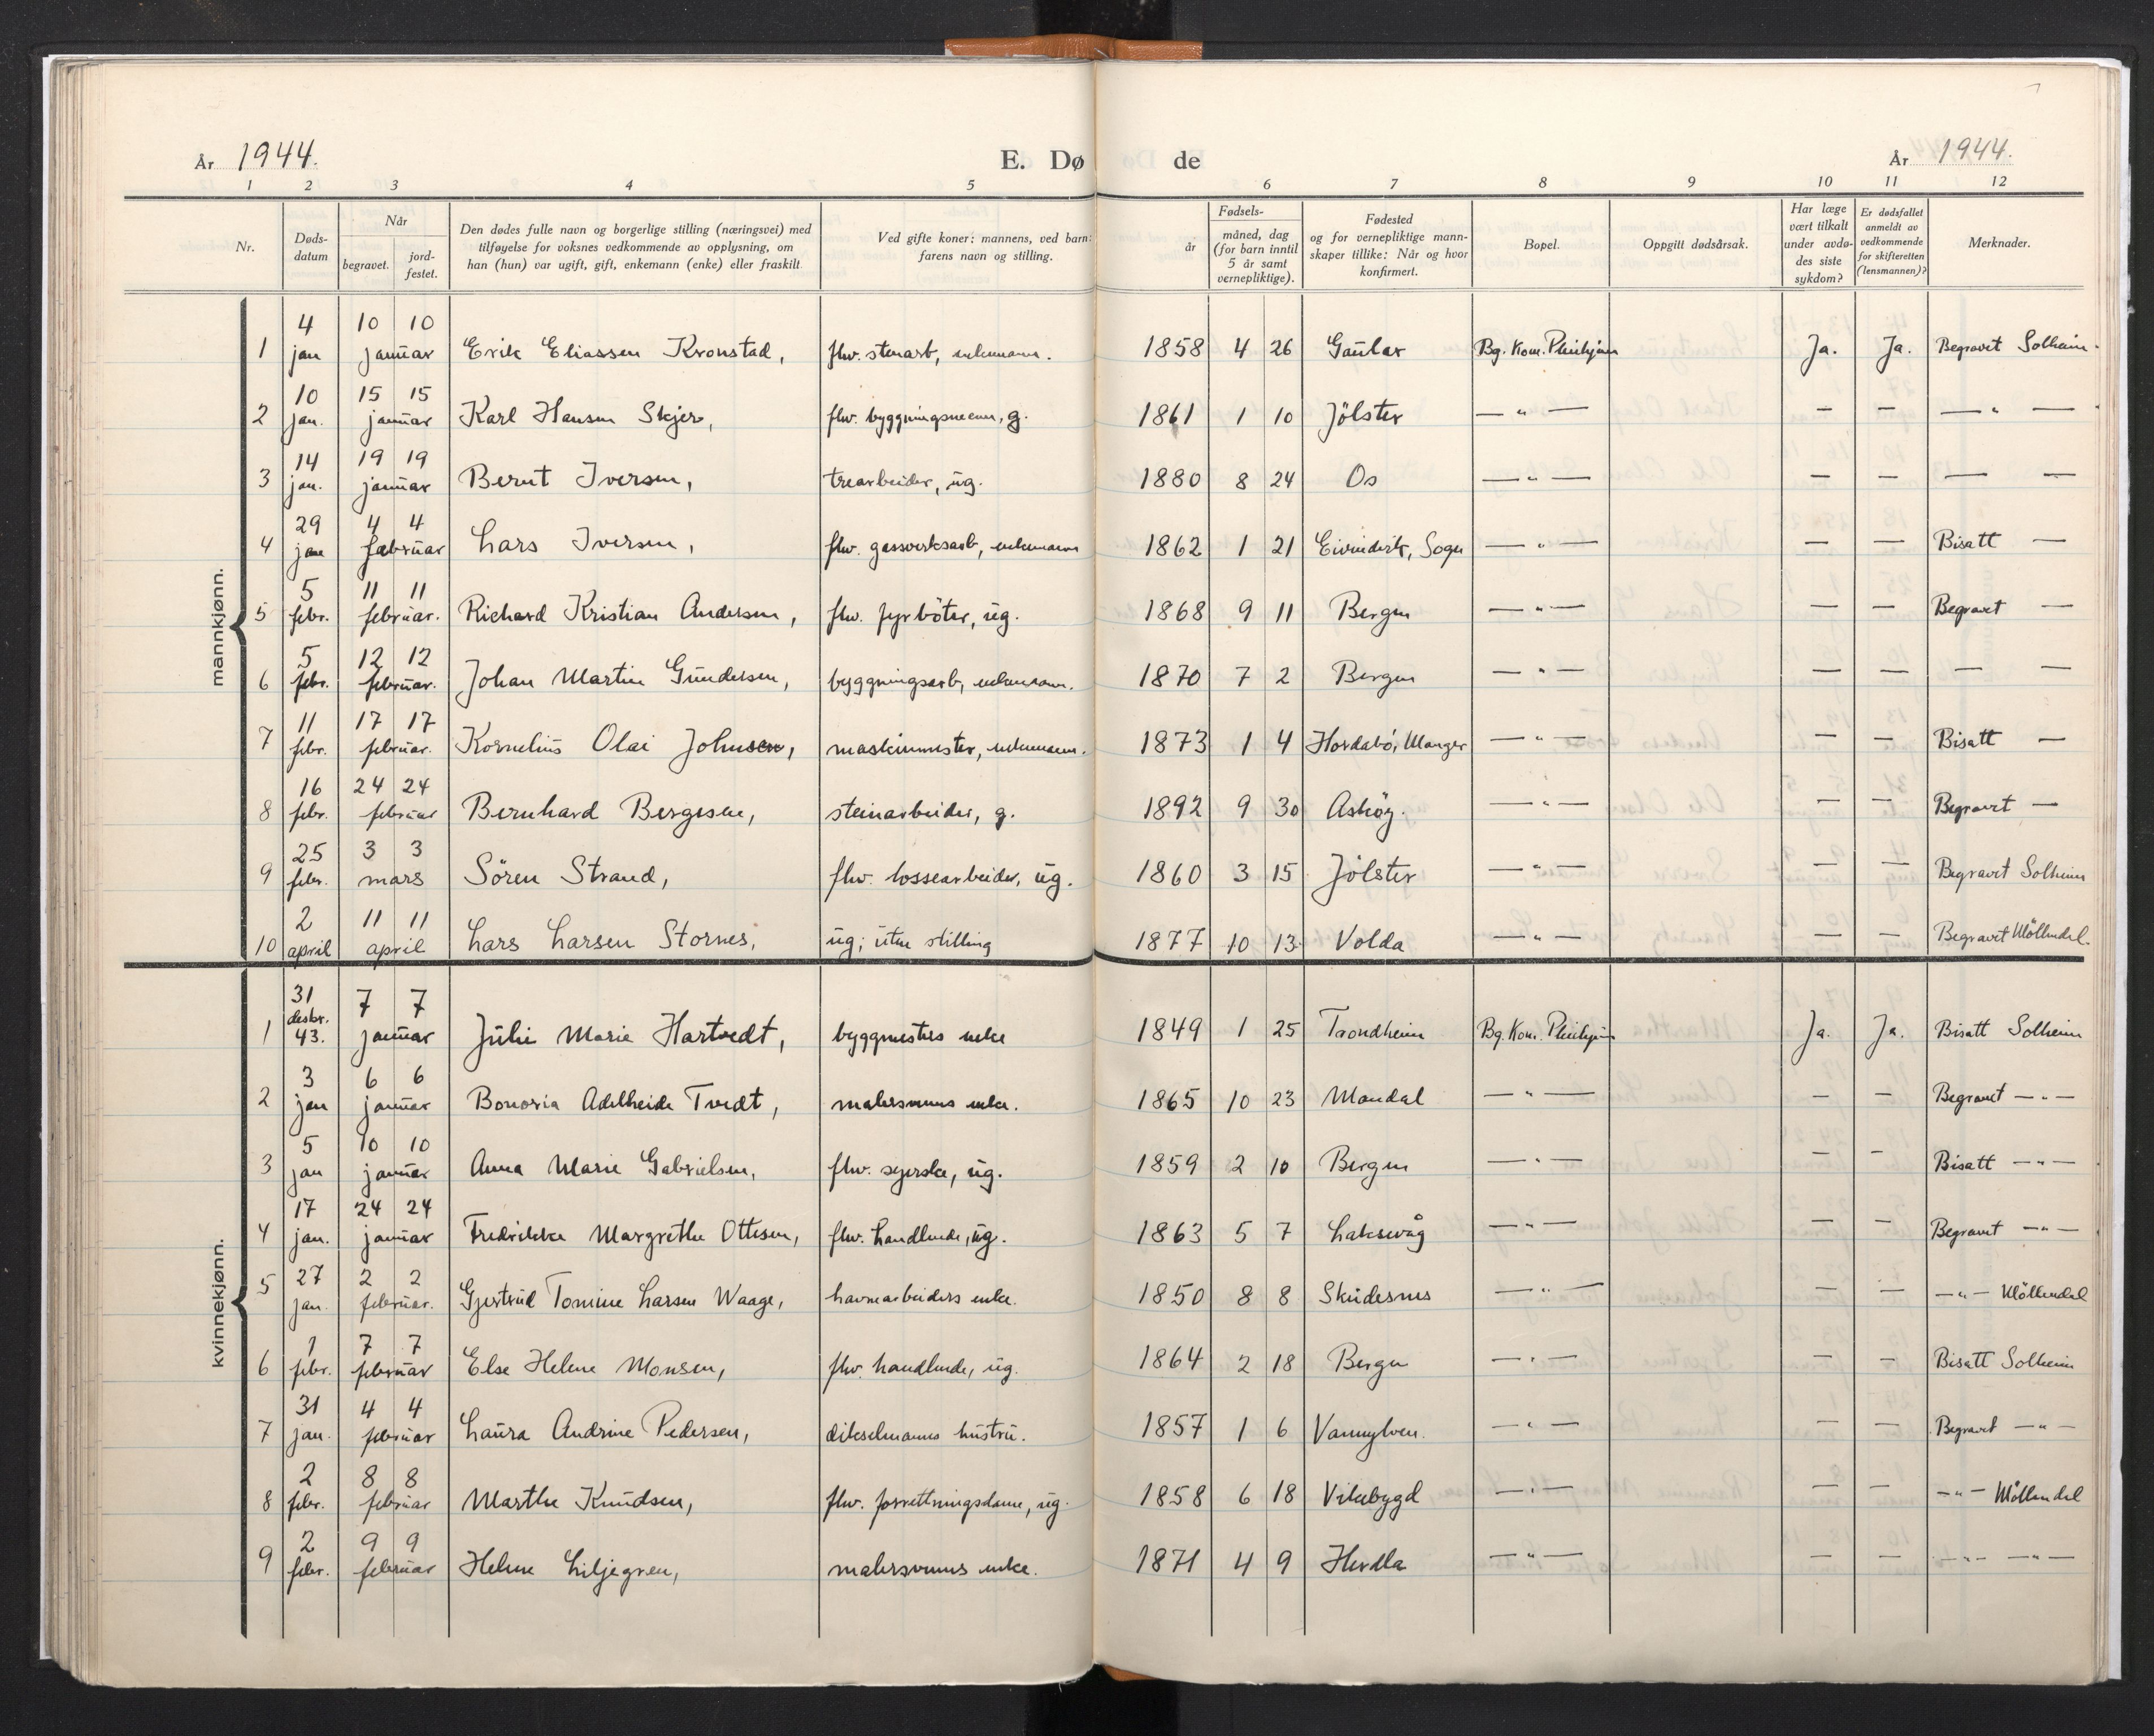 År 1944.
E. Dø de
År 1944.
1 2 3 4 5 6 7 8 9 10 11 12
Nr.
Døds-
datum
Når
begravet.
jord-
festet.
Den dødes fulle navn og borgerlige stilling (næringsvei) med
tilføyelse for voksnes vedkommende av opplysning, om
han (hun) var ugift, gift, enkemann (enke) eller fraskilt.
Ved gifte koner: mannens, ved barn:
farens navn og stilling.
Fødsels-
år
måned, dag
(for barn inntil
5 år samt
vernepliktige).
Fødested
og for vernepliktige mann-
skaper tillike: Når og hvor
konfirmert.
Bopel.
Oppgitt dødsårsak.
Har læge
vært tilkalt
under avdø-
des siste
sykdom?
Er dødsfallet
anmeldt av
vedkommende
for skifteretten
(lensmannen)?
Merknader.
mannkjønn.
4 10 10
1 jan januar Erik Eliassen Kronstad, fhv. stenarb, enkemann. 1858 4 26 Gaular Bg. Kom. Pleiehjem Ja. Ja. Begravet Solheim
10 15 15
2 jan. januar Karl Hansen Skjer, fhv. byggningsmann, g. 1861 1 10 Jölster — " — — — — " —
14 19 19
3 jan. januar Bernt Iversen, trearbeider, ug. 1880 8 24 Os — " — — — — —
29 4 4
4 jan februar Lars Iversen, fhv. gassverksarb, enkemann 1862 1 21 Eivindvik, Sogn — " — — — Bisatt —
5 11 11
5 febr. februar. Richard Kristian Andersen, fhv. fyrböter, ug. 1868 9 11 Bergen — " — — — Begravet —
5 12 12
6 febr. februar. Johan Martin Gundersen, byggningsarb, enkemann. 1870 7 2 Bergen — " — — — — —
11 17 17
7 febr. februar. Kornelius Olai Johnsen, maskinmester, enkemann. 1873 1 4 Hordabö, Manger — " — — — Bisatt —
16 24 24
8 febr. februar Bernhard Bergesen, steinarbeider, g. 1892 9 30 Asköy. — " — — — Begravet —
25 3 3
9 febr. mars Sören Strand, fhv. lossearbeider, ug. 1860 3 15 Jölster — " — — — Begravet Solheim
2 11 11
10 april april Lars Larsen Stornes, ug; uten stilling 1877 10 13 Volda — " — — — Begravet Möllendal.
kvinnekjønn.
31 7 7
desbr.
1 43. januar Julie Marie Hartvedt, byggmesters enke 1849 1 25 Trondheim Bg. Kom. Pleiehjem Ja. Ja. Bisatt Solheim
3 6 6
2 jan januar Bonoria Adelheide Tvedt, malersvenns enke. 1865 10 23 Mandal — " — — — Begravet — " —
5 10 10
3 jan januar Anna Marie Gabrielsen, fhv. syerske, ug. 1859 2 10 Bergen — " — — — Bisatt — " —
17 24 24
4 jan. januar Fredrikke Margrethe Ottesen, fhv. handlende, ug. 1863 5 7 Laksevåg — " — — — Begravet — " —
27 2 2
5 jan. februar. Gjertrud Tomine Larsen Waage, havnearbeiders enke. 1850 8 8 Skudesnes — " — — — — " — Möllendal
1 7 7
6 febr. februar Else Helene Monsen, fhv. handlende, ug. 1864 2 18 Bergen — " — — — Bisatt Solheim
31 4 4
7 jan. februar Laura Andrine Pedersen, dikselmanns hustru. 1857 1 6 Vannylven. — " — — — Begravet — " —
2 8 8
8 febr. februar Marthe Knudsen, fhv. forrettningsdame, ug. 1858 6 18 Vikebygd — " — — — — " — Möllendal
2 9 9
9 febr. februar Helene Liljegren, malersvenns enke. 1871 4 9 Herdla — " — — — — " — — " —